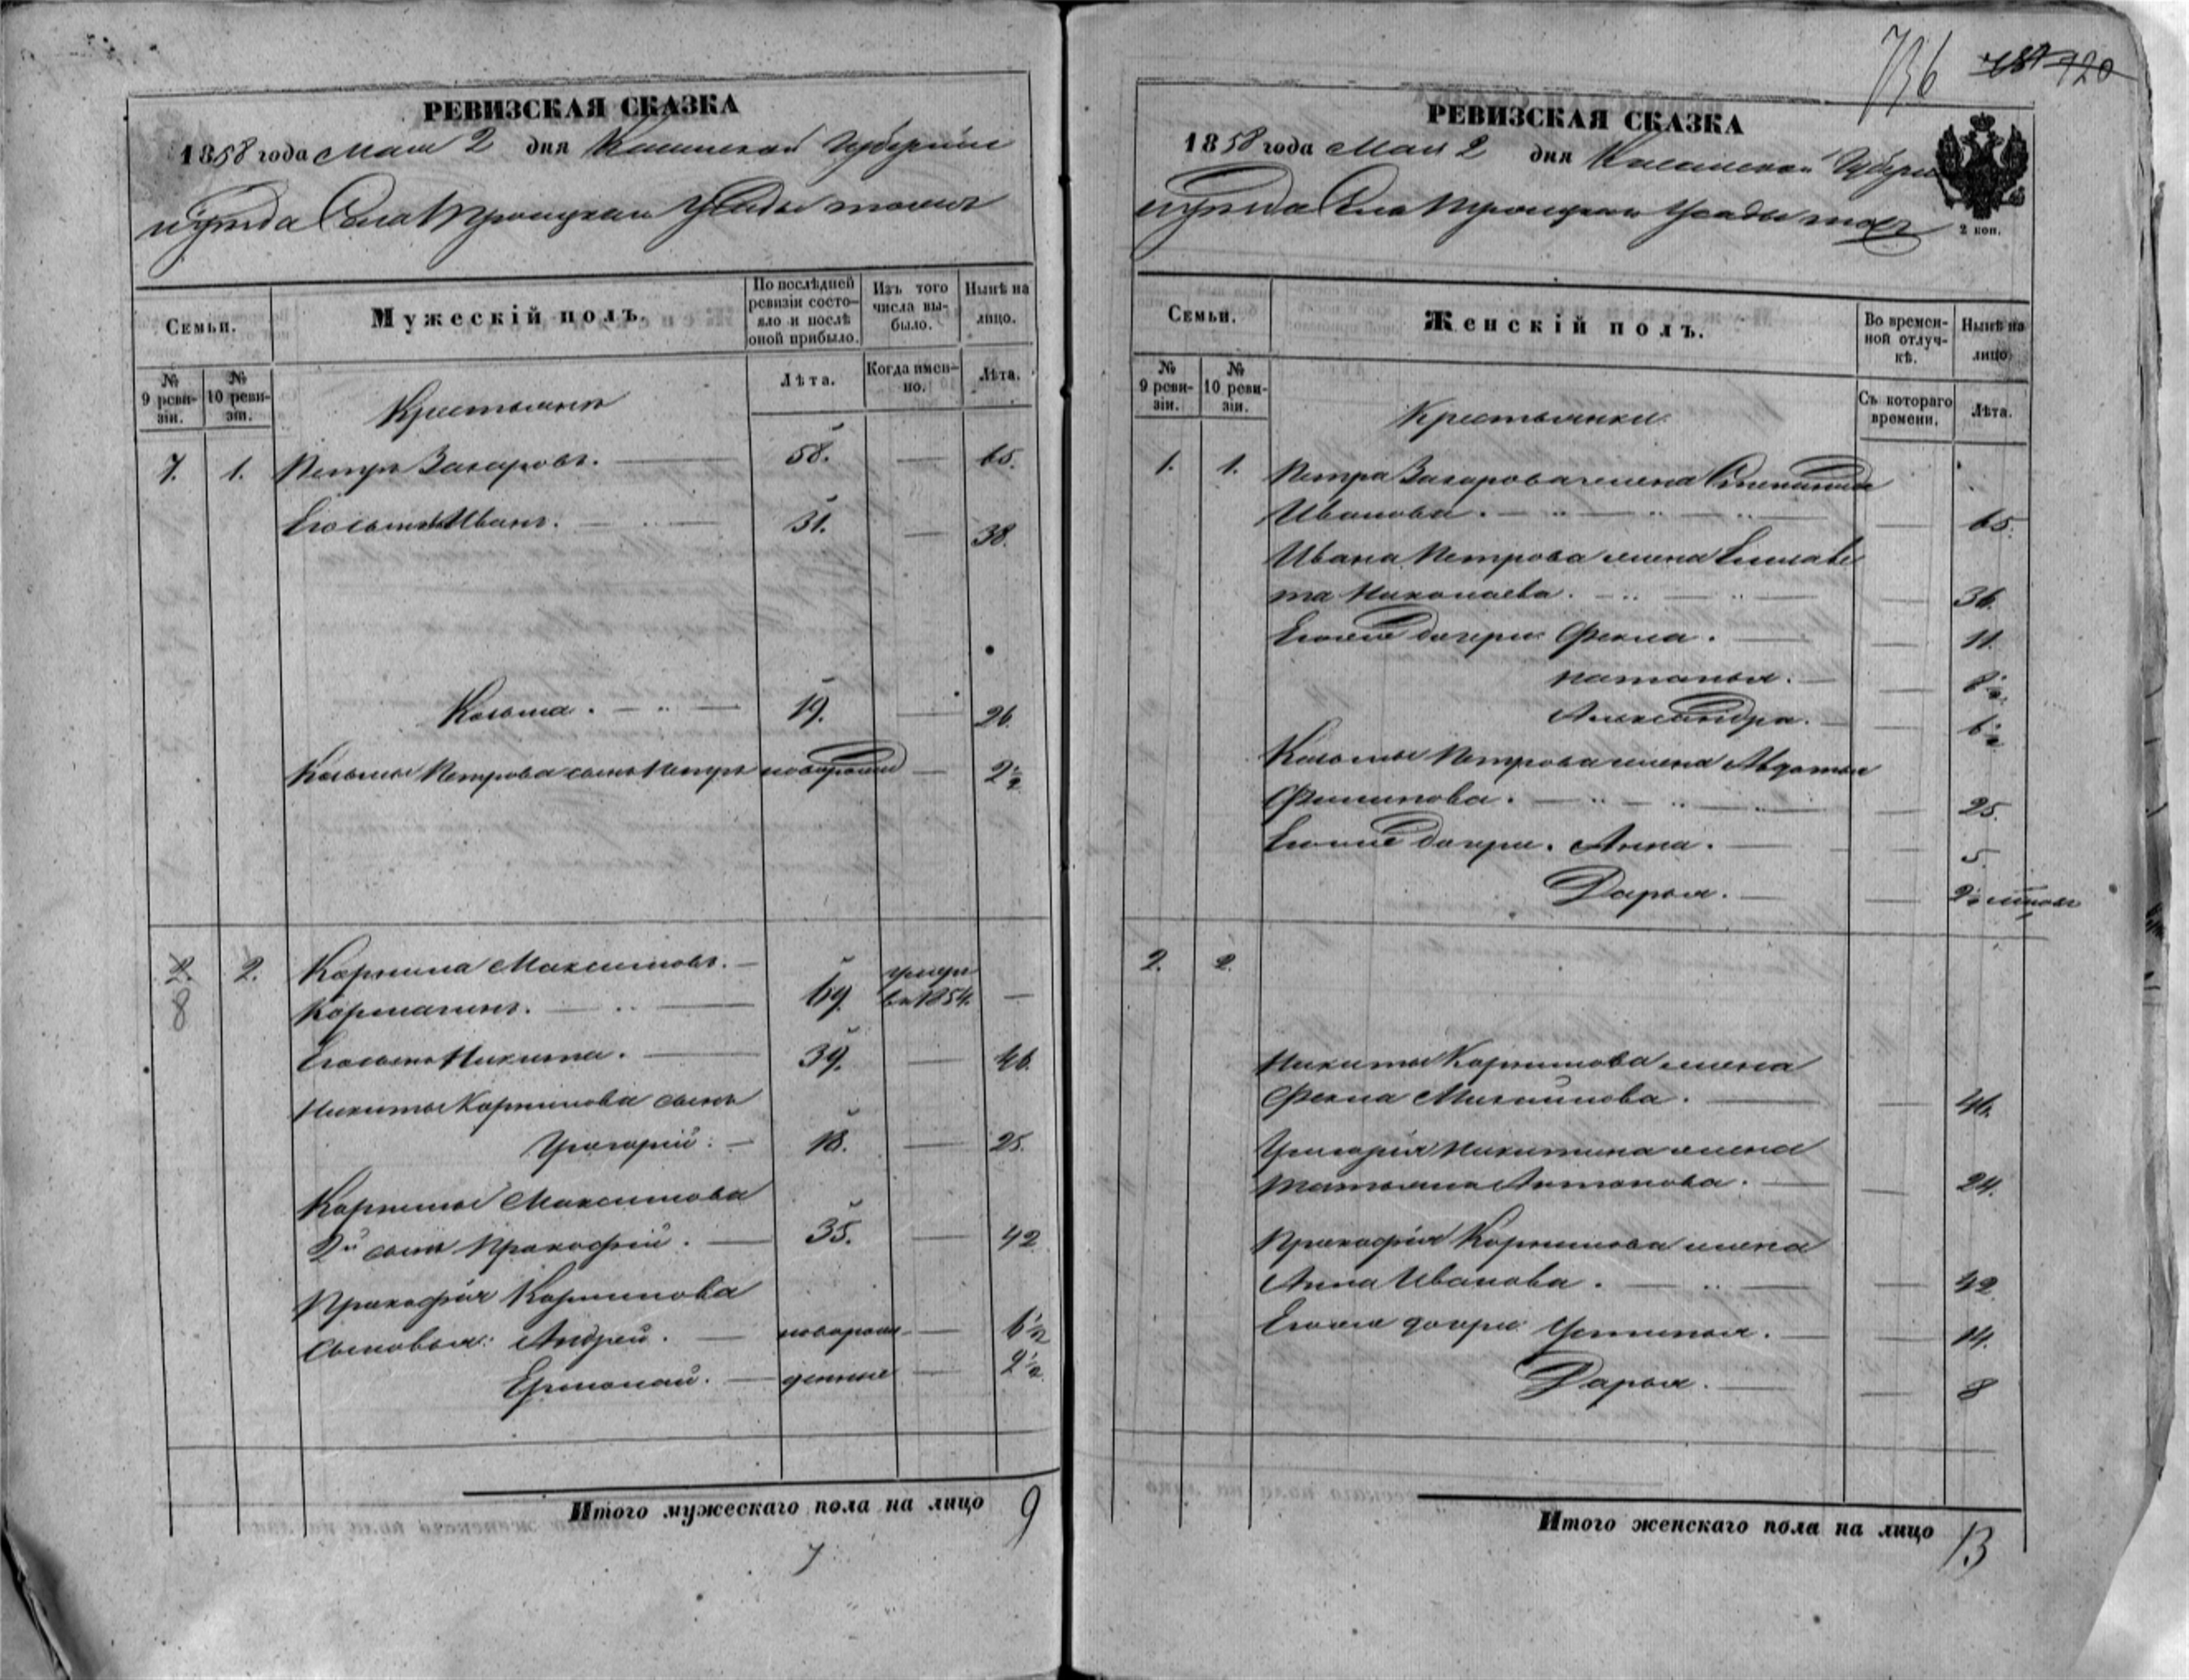 736 787 120
РЕВИЗСКАЯ СКАЗКА
1858 года Мая 2 дня Казанской Губерніи
уѣзда Села Троицкаи Усады тожъ
Семьи.
Мужескій полъ.
По послѣдней ревизіи состояло и послѣ оной прибыло.
Изъ того числа выбыло.
Нынѣ на лицо.
№ 9 ревизіи.
№ 10 ревизіи.
Лѣта.
Когда именно.
Лѣта.
Крестьянъ
7. 1. Петръ Захаровъ. 58. — 65.
Его сынъ Иванъ. 31. — 38.
Козьма. 19. — 26.
Козьмы Петрова сынъ Петръ новорожд — 2½
2. 8 2. Кормила Максимовъ.
69. умеръ в 1854. —
Его сынъ Никита. 39. — 46.
Никиты Кормилова сынъ
Григорій. 18. — 25.
Кормилы Максимова
2й сынъ Прокофій. 35. — 42
Прокофія Кормилова
сыновья: Андрей. — новорож- — 6½
Ермолай. — денные — 2½
Итого мужескаго пола на лицо 9
7
РЕВИЗСКАЯ СКАЗКА
1858 года Мая 2 дня Казанской Губерн
уѣзда Села Троицкаи Усады тожъ
2 коп.
Семьи.
Женскій полъ.
Во временной отлучкѣ.
Нынѣ на лицо
№ 9 ревизіи.
№ 10 ревизіи.
Съ котораго времени.
Лѣта.
Крестьянки
1. 1. Петра Захарова жена Степанида
Иванова. — 65.
Ивана Петрова жена Елизаве
та Николаева. — 36.
Его же дочери: Фекла. — 11.
Наталья. — 8½
Александра. — 6½
Козьмы Петрова жена Авдотья
Филипова. — 25.
Его же дочери. Анна. — 5.
Дарья. —
2. 2.
Никиты Кормилова жена
Фекла Михайлова. — 46.
Григорія Никитина жена
Татьяна Антонова. — 24.
Прокофія Кормилова жена
Анна Иванова. — 42
Его же дочери: Устинья. — 14.
Дарья. — 8
Итого женскаго пола на лицо 13